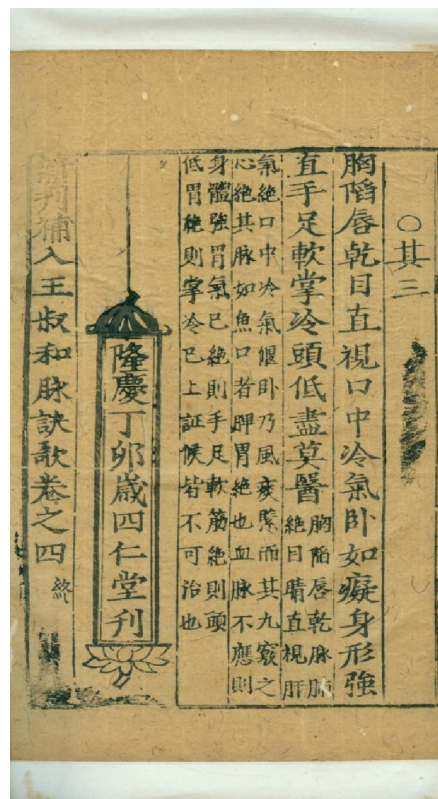 ○其三
胸陷唇乾目直視口中冷氣卧如癡身形強
直手足軟掌冷頭低盡莫醫
胸陷唇乾脉肺
絶目睛直視肝
氣絶口中冷氣偃卧乃風痰緊而其九竅之
心絶其脉如魚口者脾胃絶也血脉不應則
身體強胃氣已絶則手足軟筋絶則頭
低胃絶則掌冷已上証候皆不可治也
隆慶丁卯歳四仁堂刊
新刊補入王叔和脉訣歌卷之四 終